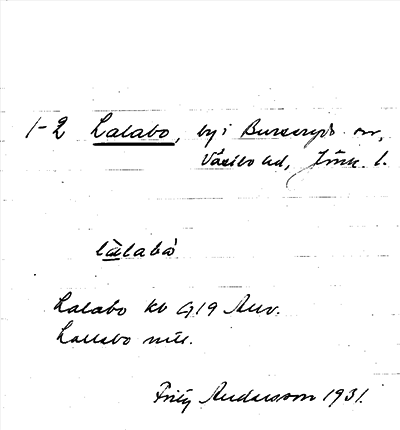 1-2 Lalabo, by i Burseryds sn,
Västbo hd, Jönk. l.
Lalabo kb G19 Auv.
Lallabo mtl.
Fritz Andersson 1931.